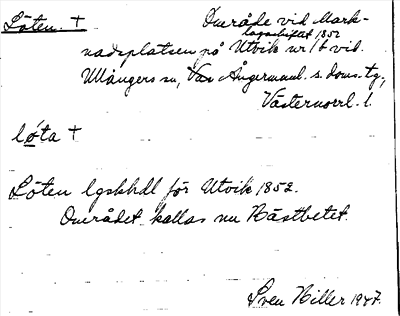 Löten. † Område vid Mark-
lagaskiftet 1852
nadsplatsen på Utvik nr 1 t vid.
Ullångers sn, Ångermanl. s. doms. tg.,
Västernorrl. l.
lø̄ta †
Löten lgskhdl för Utvik 1852.
Området kallas nu Hästbetet.
Sven Hiller 1947.